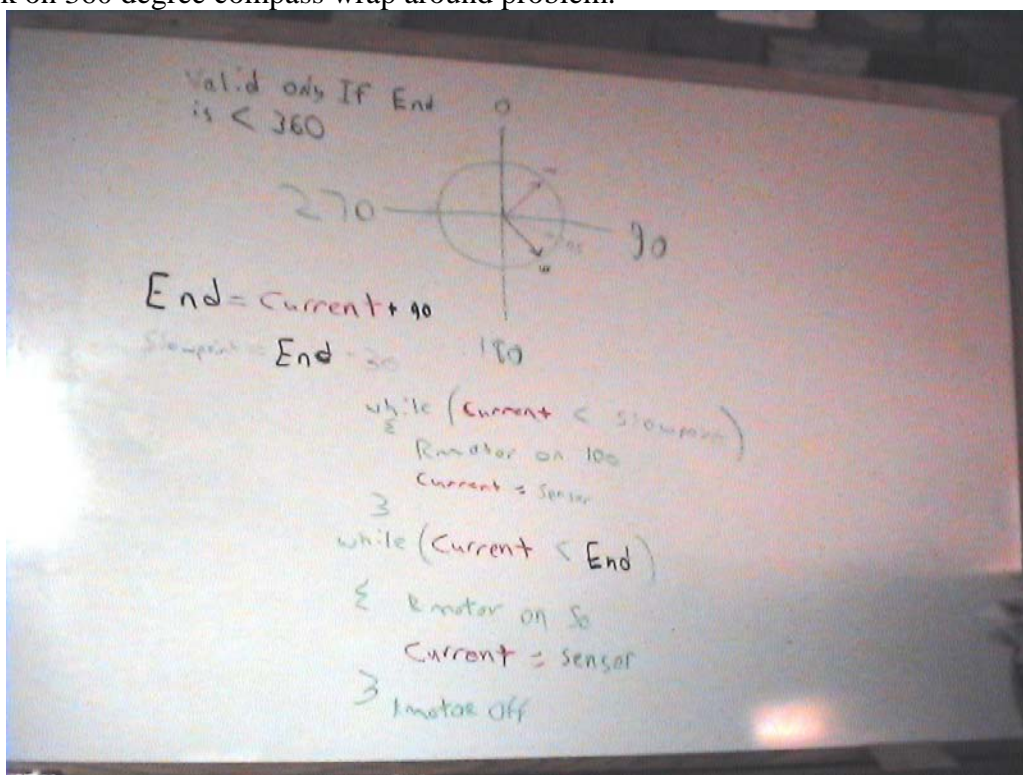 k on 360 degree compass wrap around problem.
Valid only If End
is < 360
0
270
90
End = Current + 90
Slowpoint = End - 30
180
while (Current < Slowpoint)
{
Rmotor on 100
Current = Sensor
}
while (Current < End)
{ Rmotor on 50
Current = Sensor
} Rmotor Off